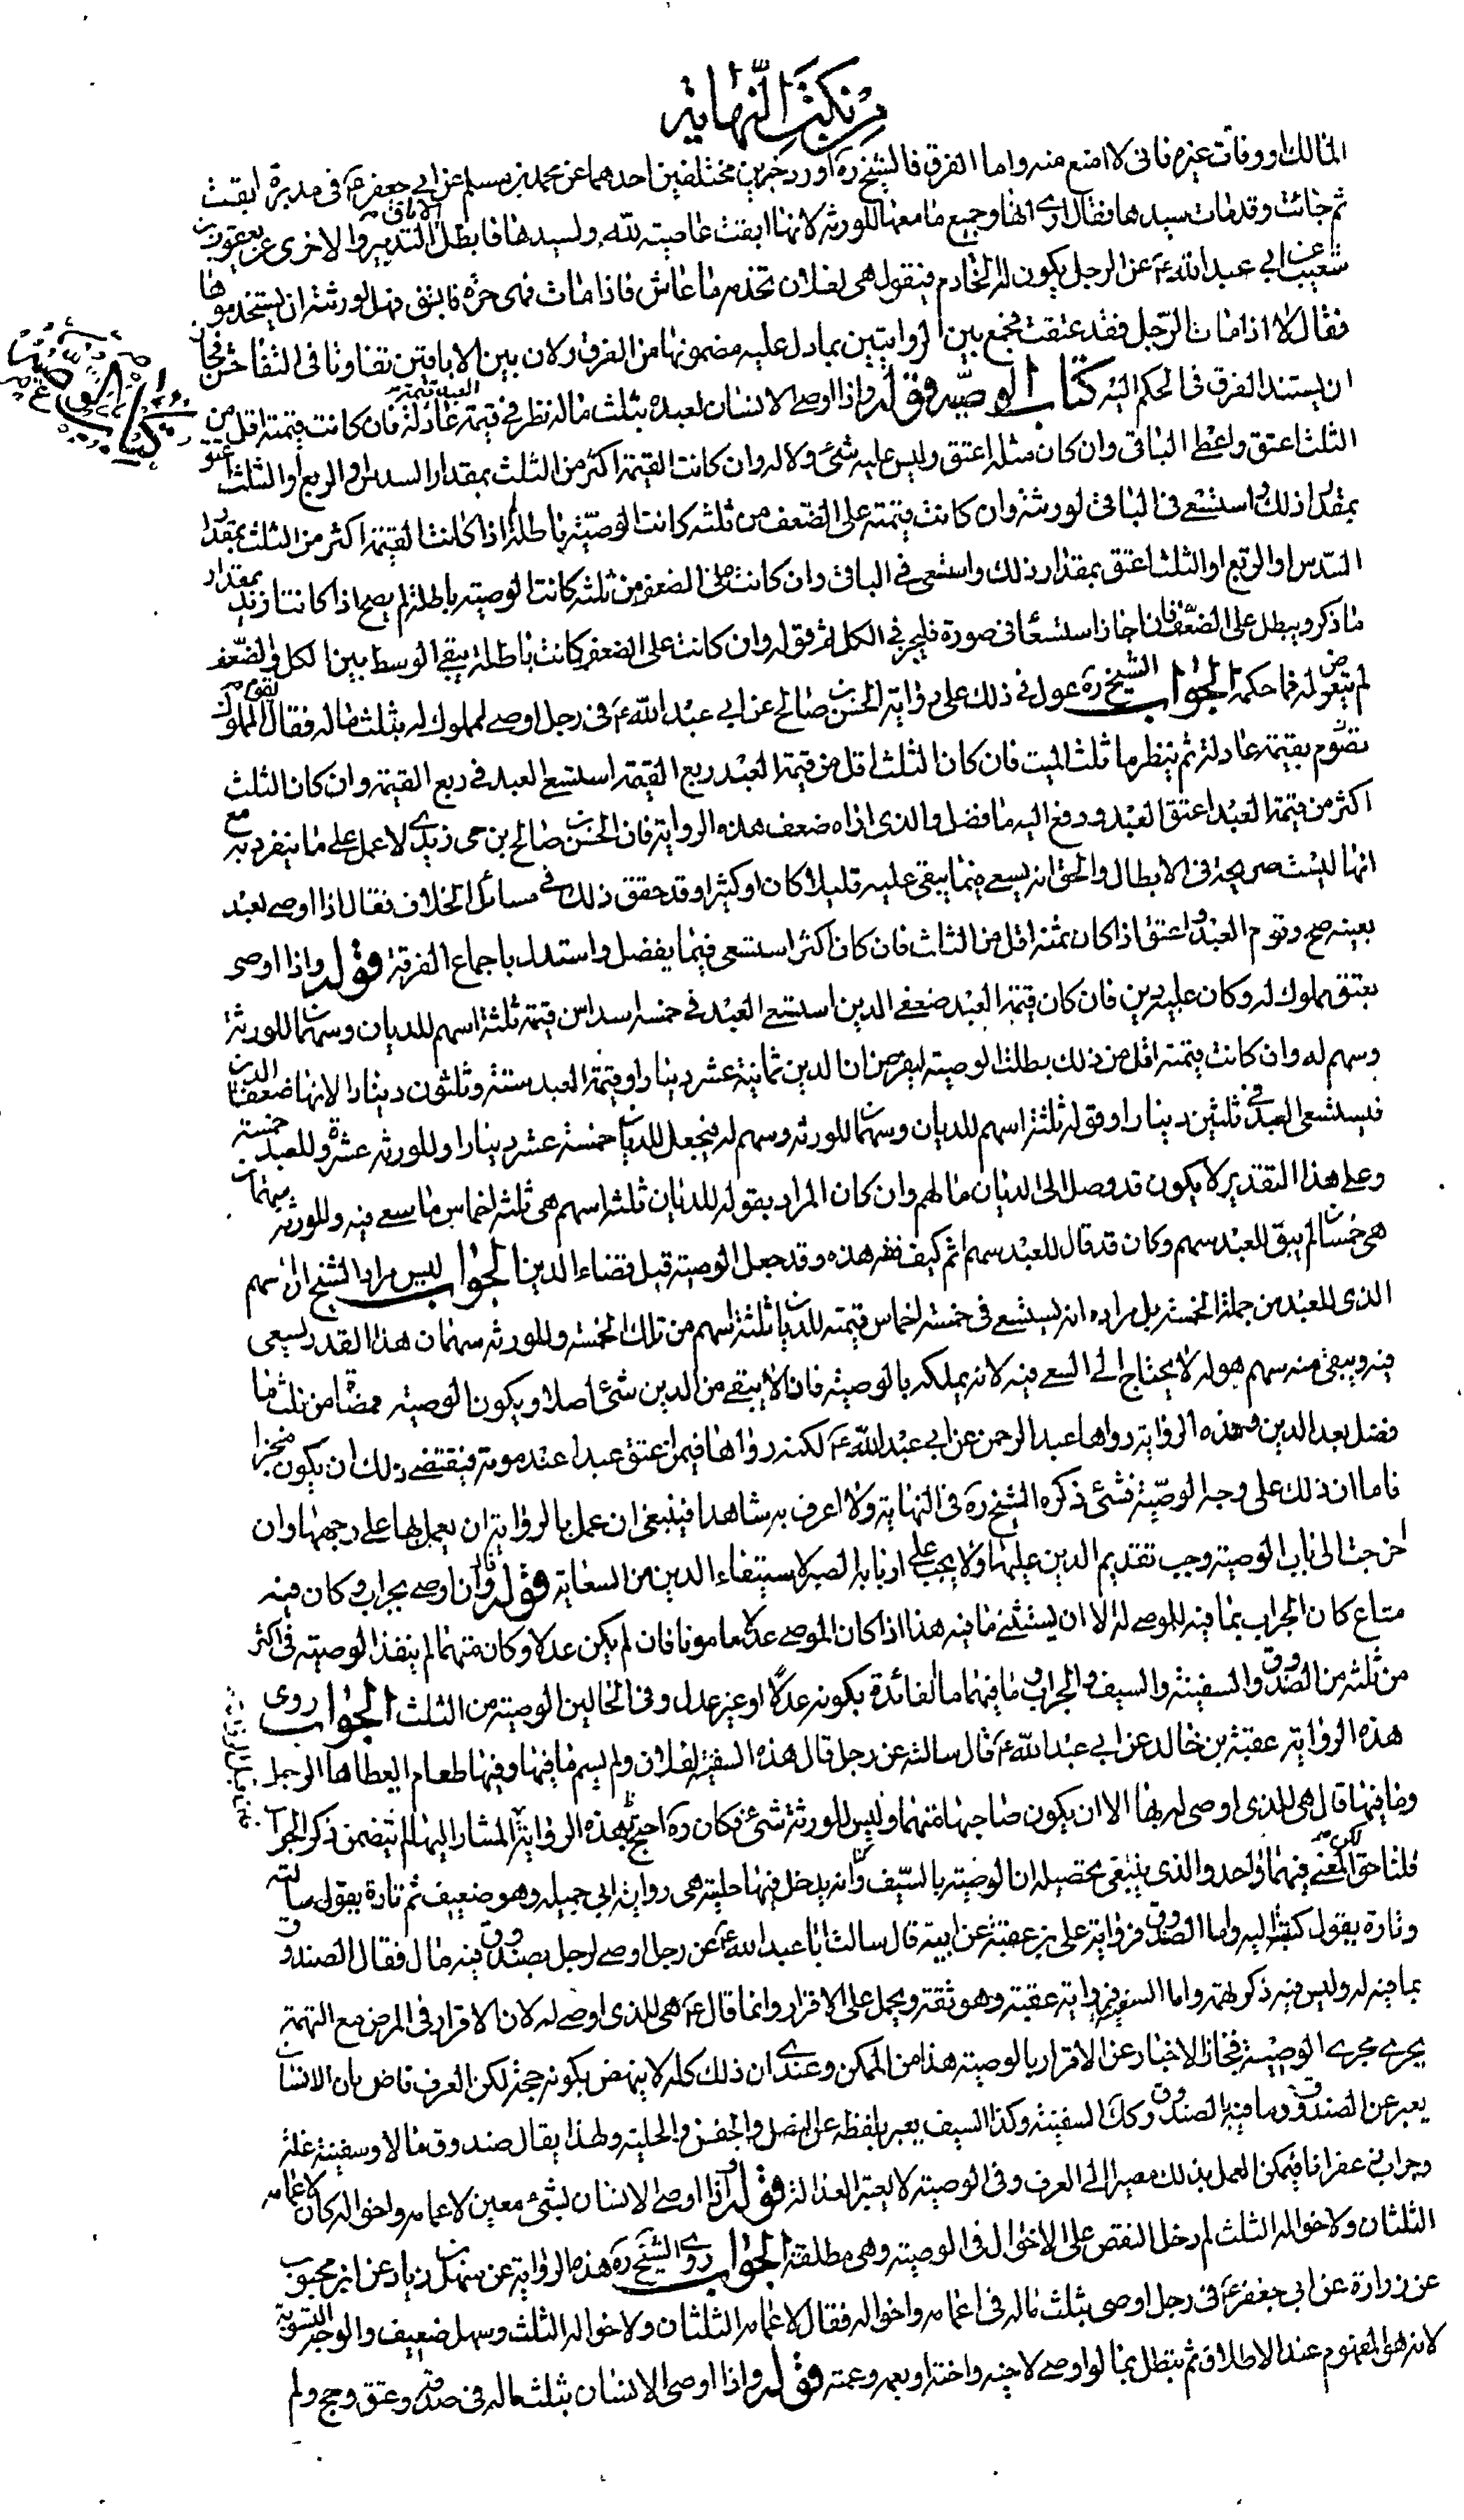 من نكت النهاية
المالك او وفات عزم فانى لا امنع منه واما الفرق فالشيخ ره اورد خبرين مختلفين احدهما عن محمد بن مسلم عن ابى جعفر ع فى مدبرة ابقت
ثم جائت وقد مات سيدها فقال ارى انها وجميع ما معها للورثه لانها ابقت عاصيته لله ولسيدها فابطل الاباق التدبير والاخرى عن يعقوب بن
شعيب عن ابى عبد الله ع عن الرجل يكون له الخادم فيقول هى لفلان تخدمه ما عاش فاذا مات فهى حرة فابق منه الورثة ان يستخدموها
فقال لا اذا مات الرجل فقد عتقت فجمع بين الروايتين بما دل عليه مضمونها من الفرق ولان بين الاباقين تفاوتا فى التفاحش فجاز
ان يستند الفرق فى الحكم اليه كتاب الوصيه قوله واذا اوصى الانسان لعبده بثلث ماله نظر فى قيمة العبد قيمة عادلة فان كانت قيمته اقل من
كتاب الوصية
الثلث اعتق واعطى الباقى وان كان مثله اعتق وليس عليه شئ ولا له وان كانت القيمة اكثر من الثلث بمقدار السدس او الربع او الثلث اعتق
بمقدار ذلك واستسعى فى الباقى لورثته وان كانت قيمته على الضعف من ثلثه كانت الوصية باطلة لم اذا كانت القيمة اكثر من الثلث بمقدار
السدس او الربع او الثلث اعتق بمقدار ذلك واستسعى فى الباقى وان كانت على الضعف من ثلثه كانت الوصيه باطلة لم يصح اذا كانت ازيد بمقدار
ما ذكر ويبطل على الضعف فان جاز استسعا فى صورة فليجز فى الكل ثم قوله وان كانت على الضعف كانت باطلة يبقى الوسط بين الكل والضعف
لم يتعرض له فما حكمه الجواب الشيخ ره عول فى ذلك على رواية الحسن بن صالح عن ابى عبد الله ع فى رجل اوصى لمملوك له بثلث ماله فقال يقوم المملوك
بقيمة عادلة ثم ينظر ما ثلث الميت فان كان الثلث اقل من قيمة العبد ربع القيمة استسعى العبد فى ربع القيمة وان كان الثلث
اكثر من قيمة العبد اعتق العبد ودفع اليه ما فضل والذى اراه ضعف هذه الرواية فان الحسن بن صالح بن حى زيدى لا اعمل على ما ينفرد به مع
انها ليست صريحة فى الابطال والحق انه يسعى فيما يبقى عليه قليلا كان او كثيرا وقد حقق ذلك فى مسائل الخلاف فقال اذا اوصى لعبد
بعينه صح وقوم العبد واعتق اذا كان ثمنه اقل من الثلث فان كان اكثر استسعى فيما يفضل واستدل باجماع الفرقة قوله واذا اوصى
بعتق مملوك له وكان عليه دين فان كان قيمة العبد ضعفى الدين استسعى العبد فى خمسة اسداس قيمته ثلثة اسهم للديان وسهمان للورثة
وسهم له وان كانت قيمته اقل من ذلك بطلت الوصيه ليفرض ان الدين ثمانية عشر دينارا وقيمة العبد ستة وثلثون دينارا لانها ضعفا الدين
فيستسعى العبد فى ثلثين دينارا وقوله ثلثة اسهم للديان وسهمان للورثه وسهم له فيجعل للديان خمسة عشر دينارا وللورثه عشرة وللعبد خمسة
وعلى هذا التقدير لا يكون قد وصل الى الديان مالهم وان كان المراد بقوله للديان ثلثة اسهم هى ثلثة اخماس ما سعى فيه وللورثه سهمان
هى خمسا لم يبق للعبد سهم وكان قد قال للعبد سهم ثم كيف فقه هذه وقد جعل الوصية قبل قضاء الدين الجواب ليس مراد الشيخ ان السهم
الذى للعبد من جملة الخمسة بل مراده انه يستسعى فى خمسة اخماس قيمته للديان ثلثة اسهم من تلك الخمسة وللورثه سهمان هذا القدر يسعى
فيه ويبقى منه سهم هو له لا يحتاج الى السعى فيه لانه يملكه بالوصيه فان لا يبقى من الدين شئ اصلا ويكون الوصيه ممضا من ثلث ما
فضل بعد الدين وهذه الرواية رواها عبد الرحمن عن ابى عبد الله ع لكنه رواها فيمن اعتق عبدا عند موته فيقتضى ذلك ان يكون منجزا
فاما ان ذلك على وجه الوصية فشئ ذكره الشيخ ره فى النهاية ولا اعرف به شاهدا فينبغى ان عمل بالرواية ان يعمل بها على وجهها وان
اخرجت الى باب الوصيه وجب تقديم الدين عليها ولا يجب على اربابه الصبر لاستيفاء الدين من السعاية قوله وان اوصى بجراب وكان فيه
متاع كان الجراب بما فيه للموصى له الا ان يستثنى ما فيه هذا اذا كان الموصى عدلا مامونا فان لم يكن عدلا وكان متهما لم ينفذ الوصيه فى اكثر
من ثلثه من الصندوق والسفينة والسيف والجراب وما فيهما ما الفائدة بكونه عدلا او غير عدل وفى الحالين الوصيه من الثلث الجواب روى
هذه الرواية عقبة بن خالد عن ابى عبد الله ع قال سالته عن رجل قال هذه السفينة لفلان ولم يسم ما فيها وفيها طعام ايعطاها الرجل
وما فيها قال هى للذى اوصى له بها الا ان يكون صاحبها متهما وليس للورثة شئ فكان ره احتج بهذه الرواية المشار اليها لم يتضمن ذكر الجراب
قلنا حق لكن المعنى فيهما واحد والذى ينبغى تحصيله ان الوصيه بالسيف وانه يدخل فيها حليته هى رواية ابى جميله وهو ضعيف ثم تارة يقول سالته
وتارة يقول كتبت اليه واما الصندوق فرواية على بن عقبة عن ابيه قال سالت ابا عبد الله ع عن رجل اوصى لرجل بصندوق فيه مال فقال الصندوق
بما فيه له وليس فيه ذكر تهمة واما السفينة فرواية عقبة وهو ثقة ويحمل على الاقرار وانما قال ع هى للذى اوصى له لان الاقرار فى المرض مع التهمة
يجرى مجرى الوصية فجاز الاخبار عن الاقرار بالوصيه هذا من الممكن وعندى ان ذلك كله لا ينهض بكونه حجة لكن العرف قاض بان الانسان
يعبر عن الصندوق وما فيه بالصندوق وكذا السفينة وكذا السيف يعبر بلفظه عن النصل والجفن والحلية ولهذا يقال صندوق مالا وسفينة غلة
وجراب زعفرانا فيمكن العمل بذلك مصيرا الى العرف وفى الوصيه لا يعتبر العدالة قوله واذا اوصى الانسان بشئ معين لاعمامه ولاخواله كان لاعمامه
الثلثان ولاخواله الثلث لم دخل النقص على الاخوال فى الوصيه وهى مطلقة الجواب روى الشيخ ره هذه الرواية عن سهل بن زياد عن ابن محبوب
عن زرارة عن ابى جعفر ع فى رجل اوصى بثلث ماله فى اعمامه واخواله فقال لاعمامه الثلثان ولاخواله الثلث وسهل ضعيف والوجه التسوية
لانه هو المفهوم عند الاطلاق ثم يبطل بما لو اوصى لاخيه واخته او بعمه وعمته قوله واذا اوصى الانسان بثلث ماله فى صدقة وعتق وحج ولم